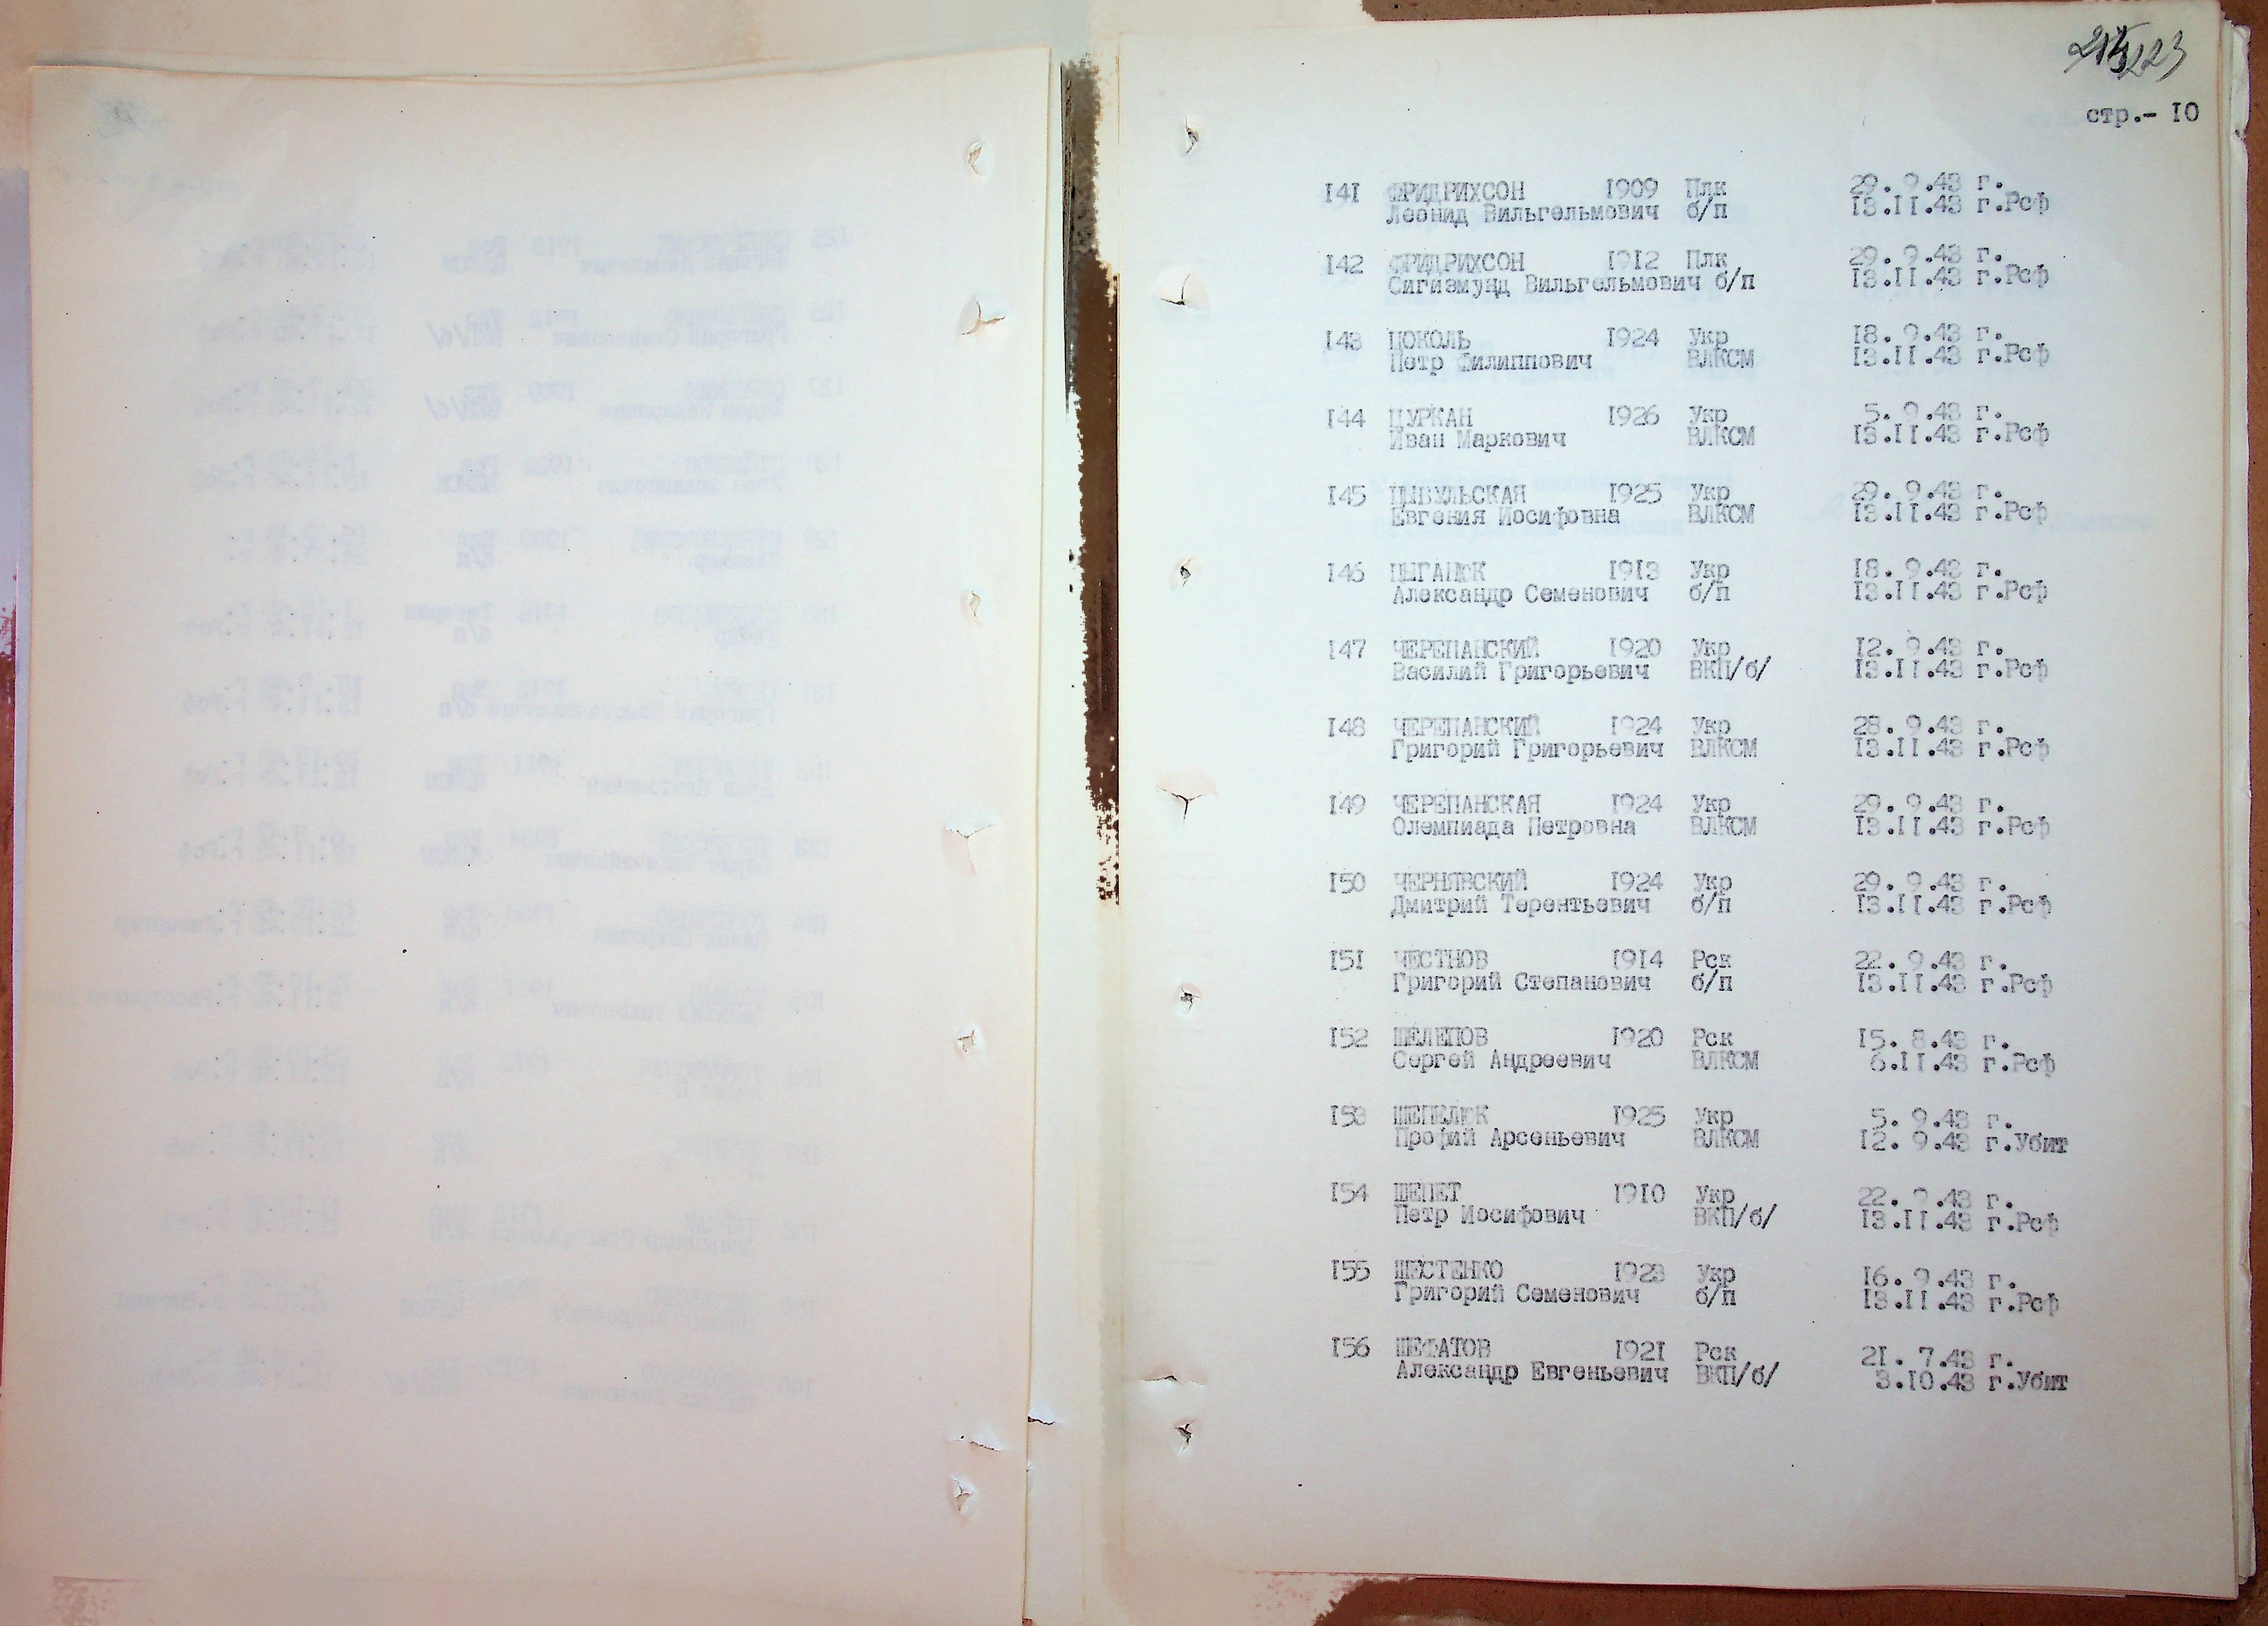 223
стр.- 10
141 ФРИДРИХСОН 1909 Плк 29. 9.43 г.
Леонид Вильгельмович б/п 13.11.43 г.Рсф
142 ФРИДРИХСОН 1912 Плк 29. 9.43 г.
Сигизмунд Вильгельмович б/п 13.11.43 г.Рсф
143 ЦОКОЛЬ 1924 Укр 18. 9.43 г.
Петр Филиппович ВЛКСМ 13.11.43 г.Рсф
144 ЦУРКАН 1926 Укр 5. 9.43 г.
Иван Маркович ВЛКСМ 13.11.43 г.Рсф
145 ЦЫБУЛЬСКАЯ 1925 Укр 29. 9.43 г.
Евгения Иосифовна ВЛКСМ 13.11.43 г.Рсф
146 ЦЫГАНЮК 1913 Укр 18. 9.43 г.
Александр Семенович б/п 13.11.43 г.Рсф
147 ЧЕРЕПАНСКИЙ 1920 Укр 12. 9.43 г.
Василий Григорьевич ВКП/б/ 13.11.43 г.Рсф
148 ЧЕРЕПАНСКИЙ 1924 Укр 28. 9.43 г.
Григорий Григорьевич ВЛКСМ 13.11.43 г.Рсф
149 ЧЕРЕПАНСКАЯ 1924 Укр 29. 9.43 г.
Олемпиада Петровна ВЛКСМ 13.11.43 г.Рсф
150 ЧЕРНЯВСКИЙ 1924 Укр 29. 9.43 г.
Дмитрий Терентьевич б/п 13.11.43 г.Рсф
151 ЧЕСТНОВ 1914 Рск 22. 9.43 г.
Григорий Степанович б/п 13.11.43 г.Рсф
152 ШЕЛЕПОВ 1920 Рск 15. 8.43 г.
Сергей Андреевич ВЛКСМ 6.11.43 г.Рсф
153 ШЕПЕЛЮК 1925 Укр 5. 9.43 г.
Профий Арсеньевич ВЛКСМ 12. 9.43 г.Убит
154 ШЕПЕТ 1910 Укр 22. 9.43 г.
Петр Иосифович ВКП/б/ 13.11.43 г.Рсф
155 ШЕСТЕНКО 1923 Укр 16. 9.43 г.
Григорий Семенович б/п 13.11.43 г.Рсф
156 ШЕФАТОВ 1921 Рск 21. 7.43 г.
Александр Евгеньевич ВКП/б/ 3.10.43 г.Убит